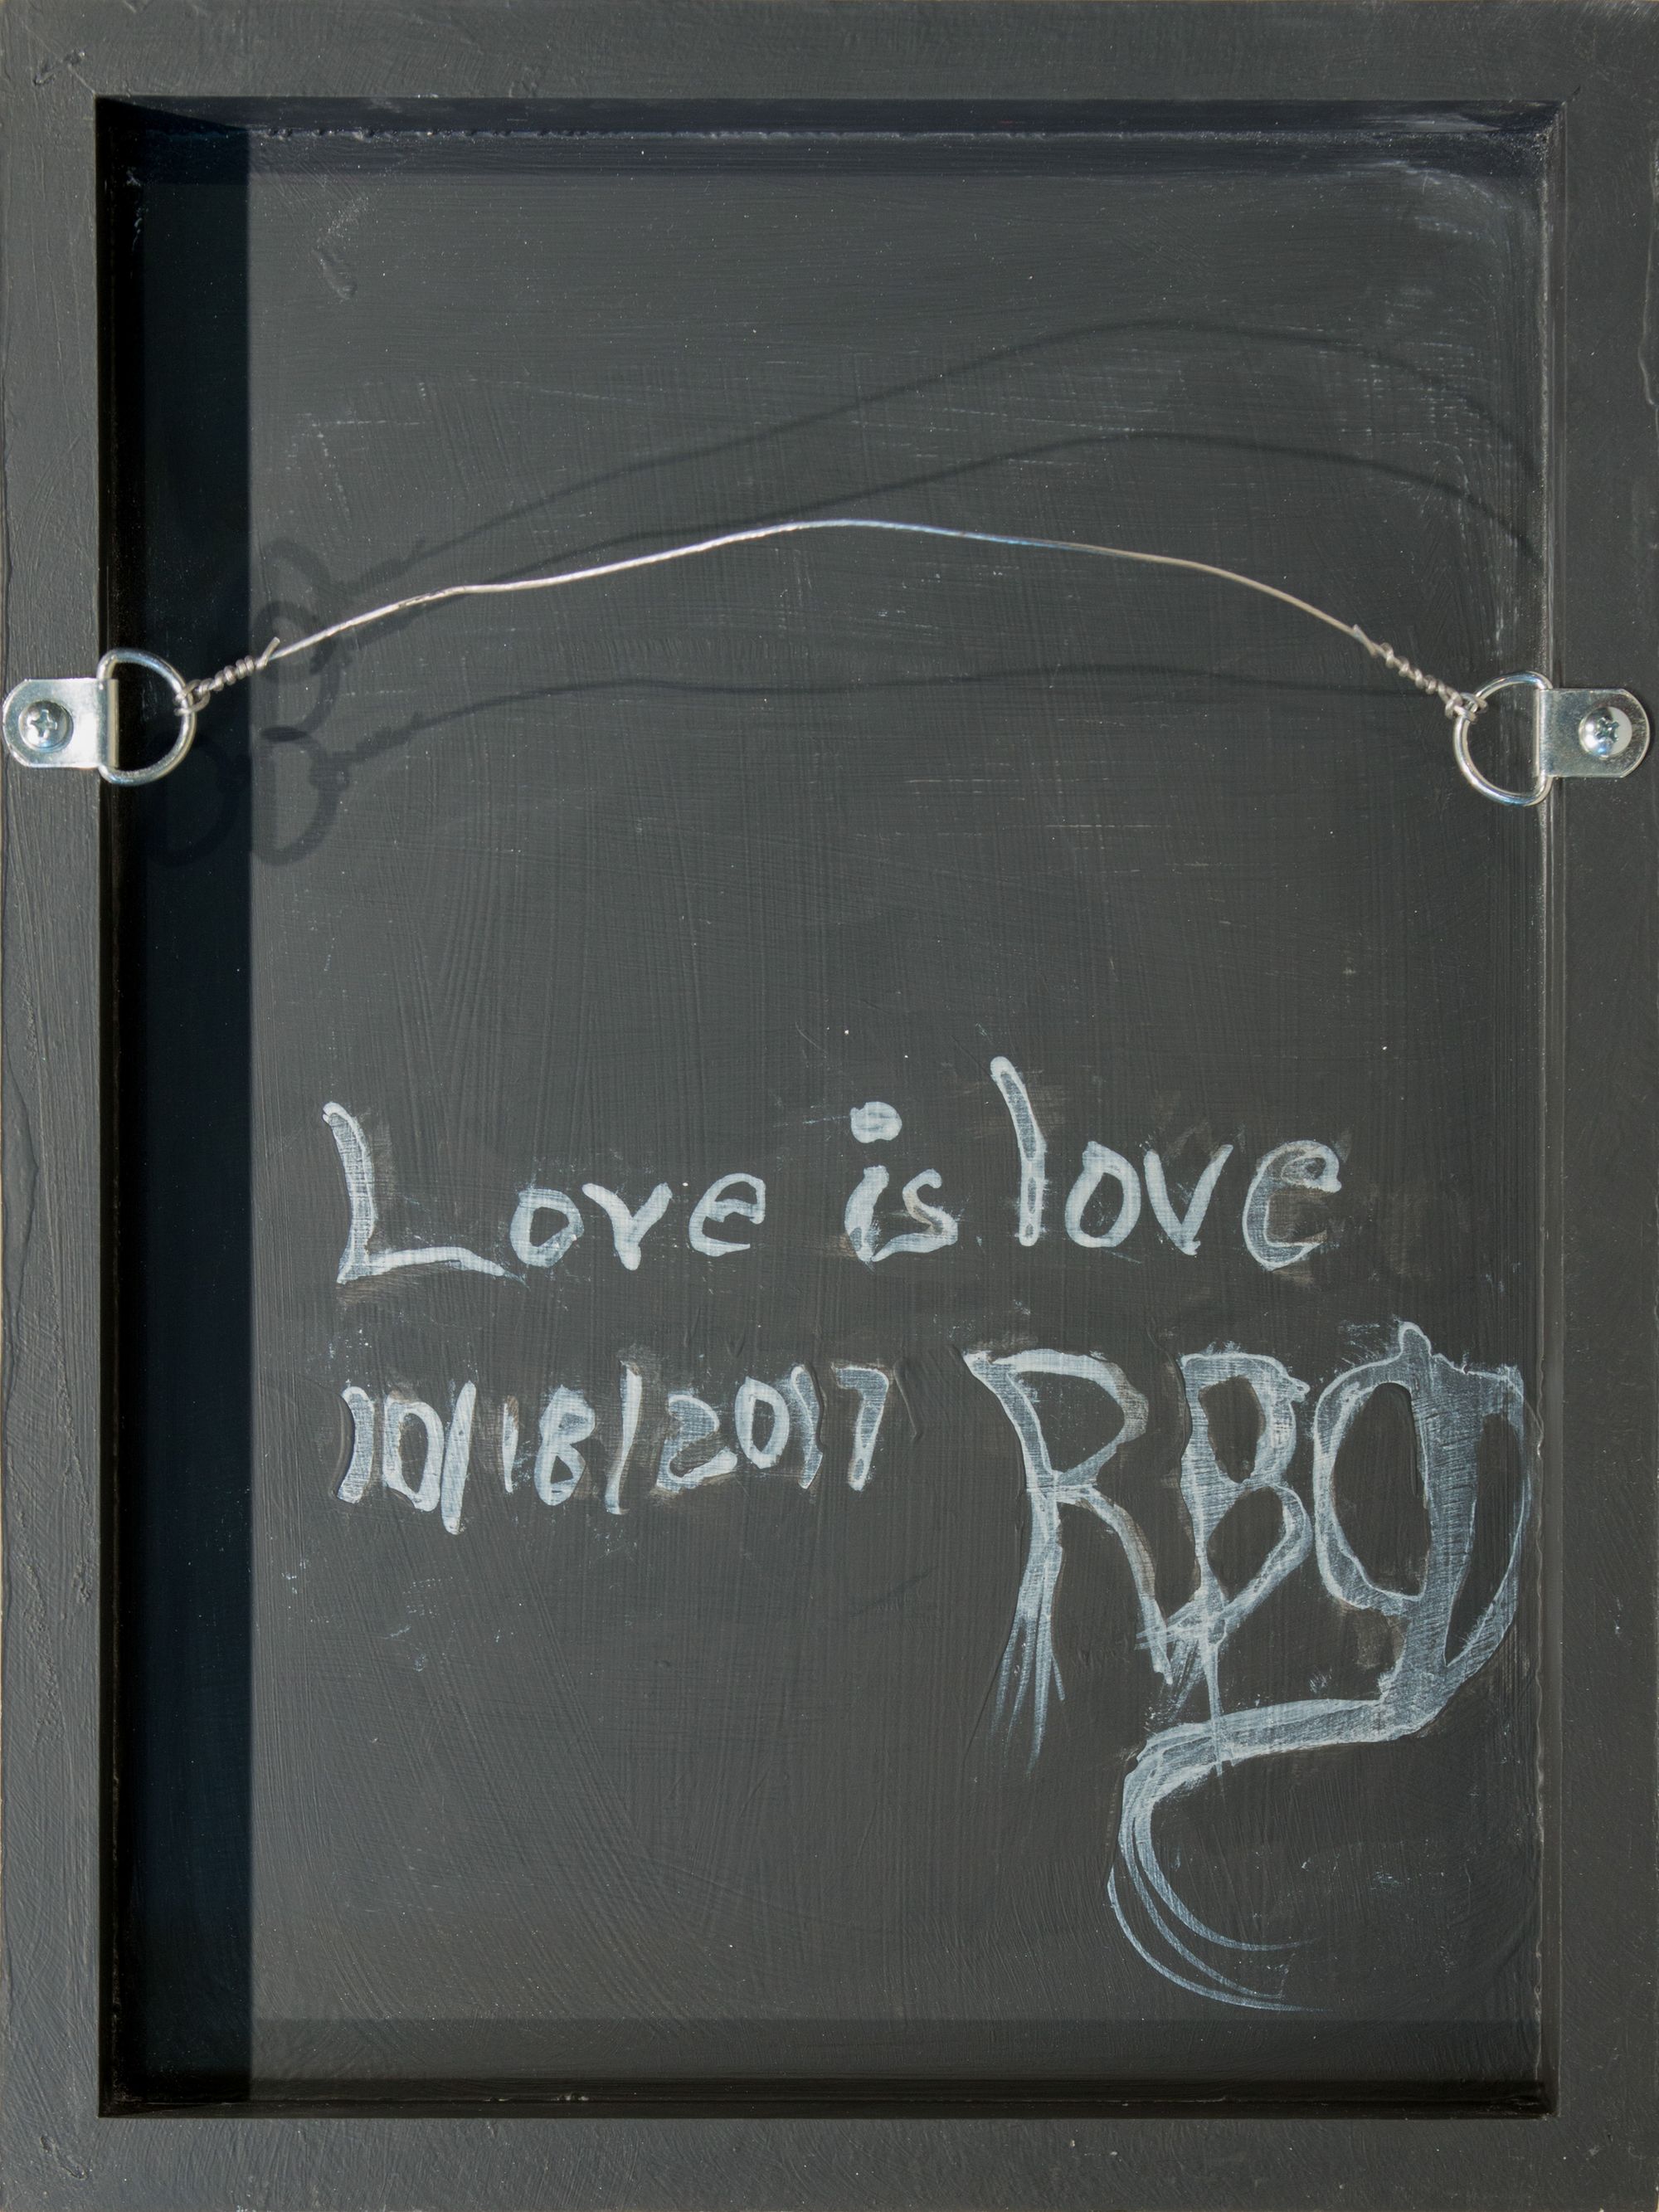 Love is love
10/18/2017 RBG